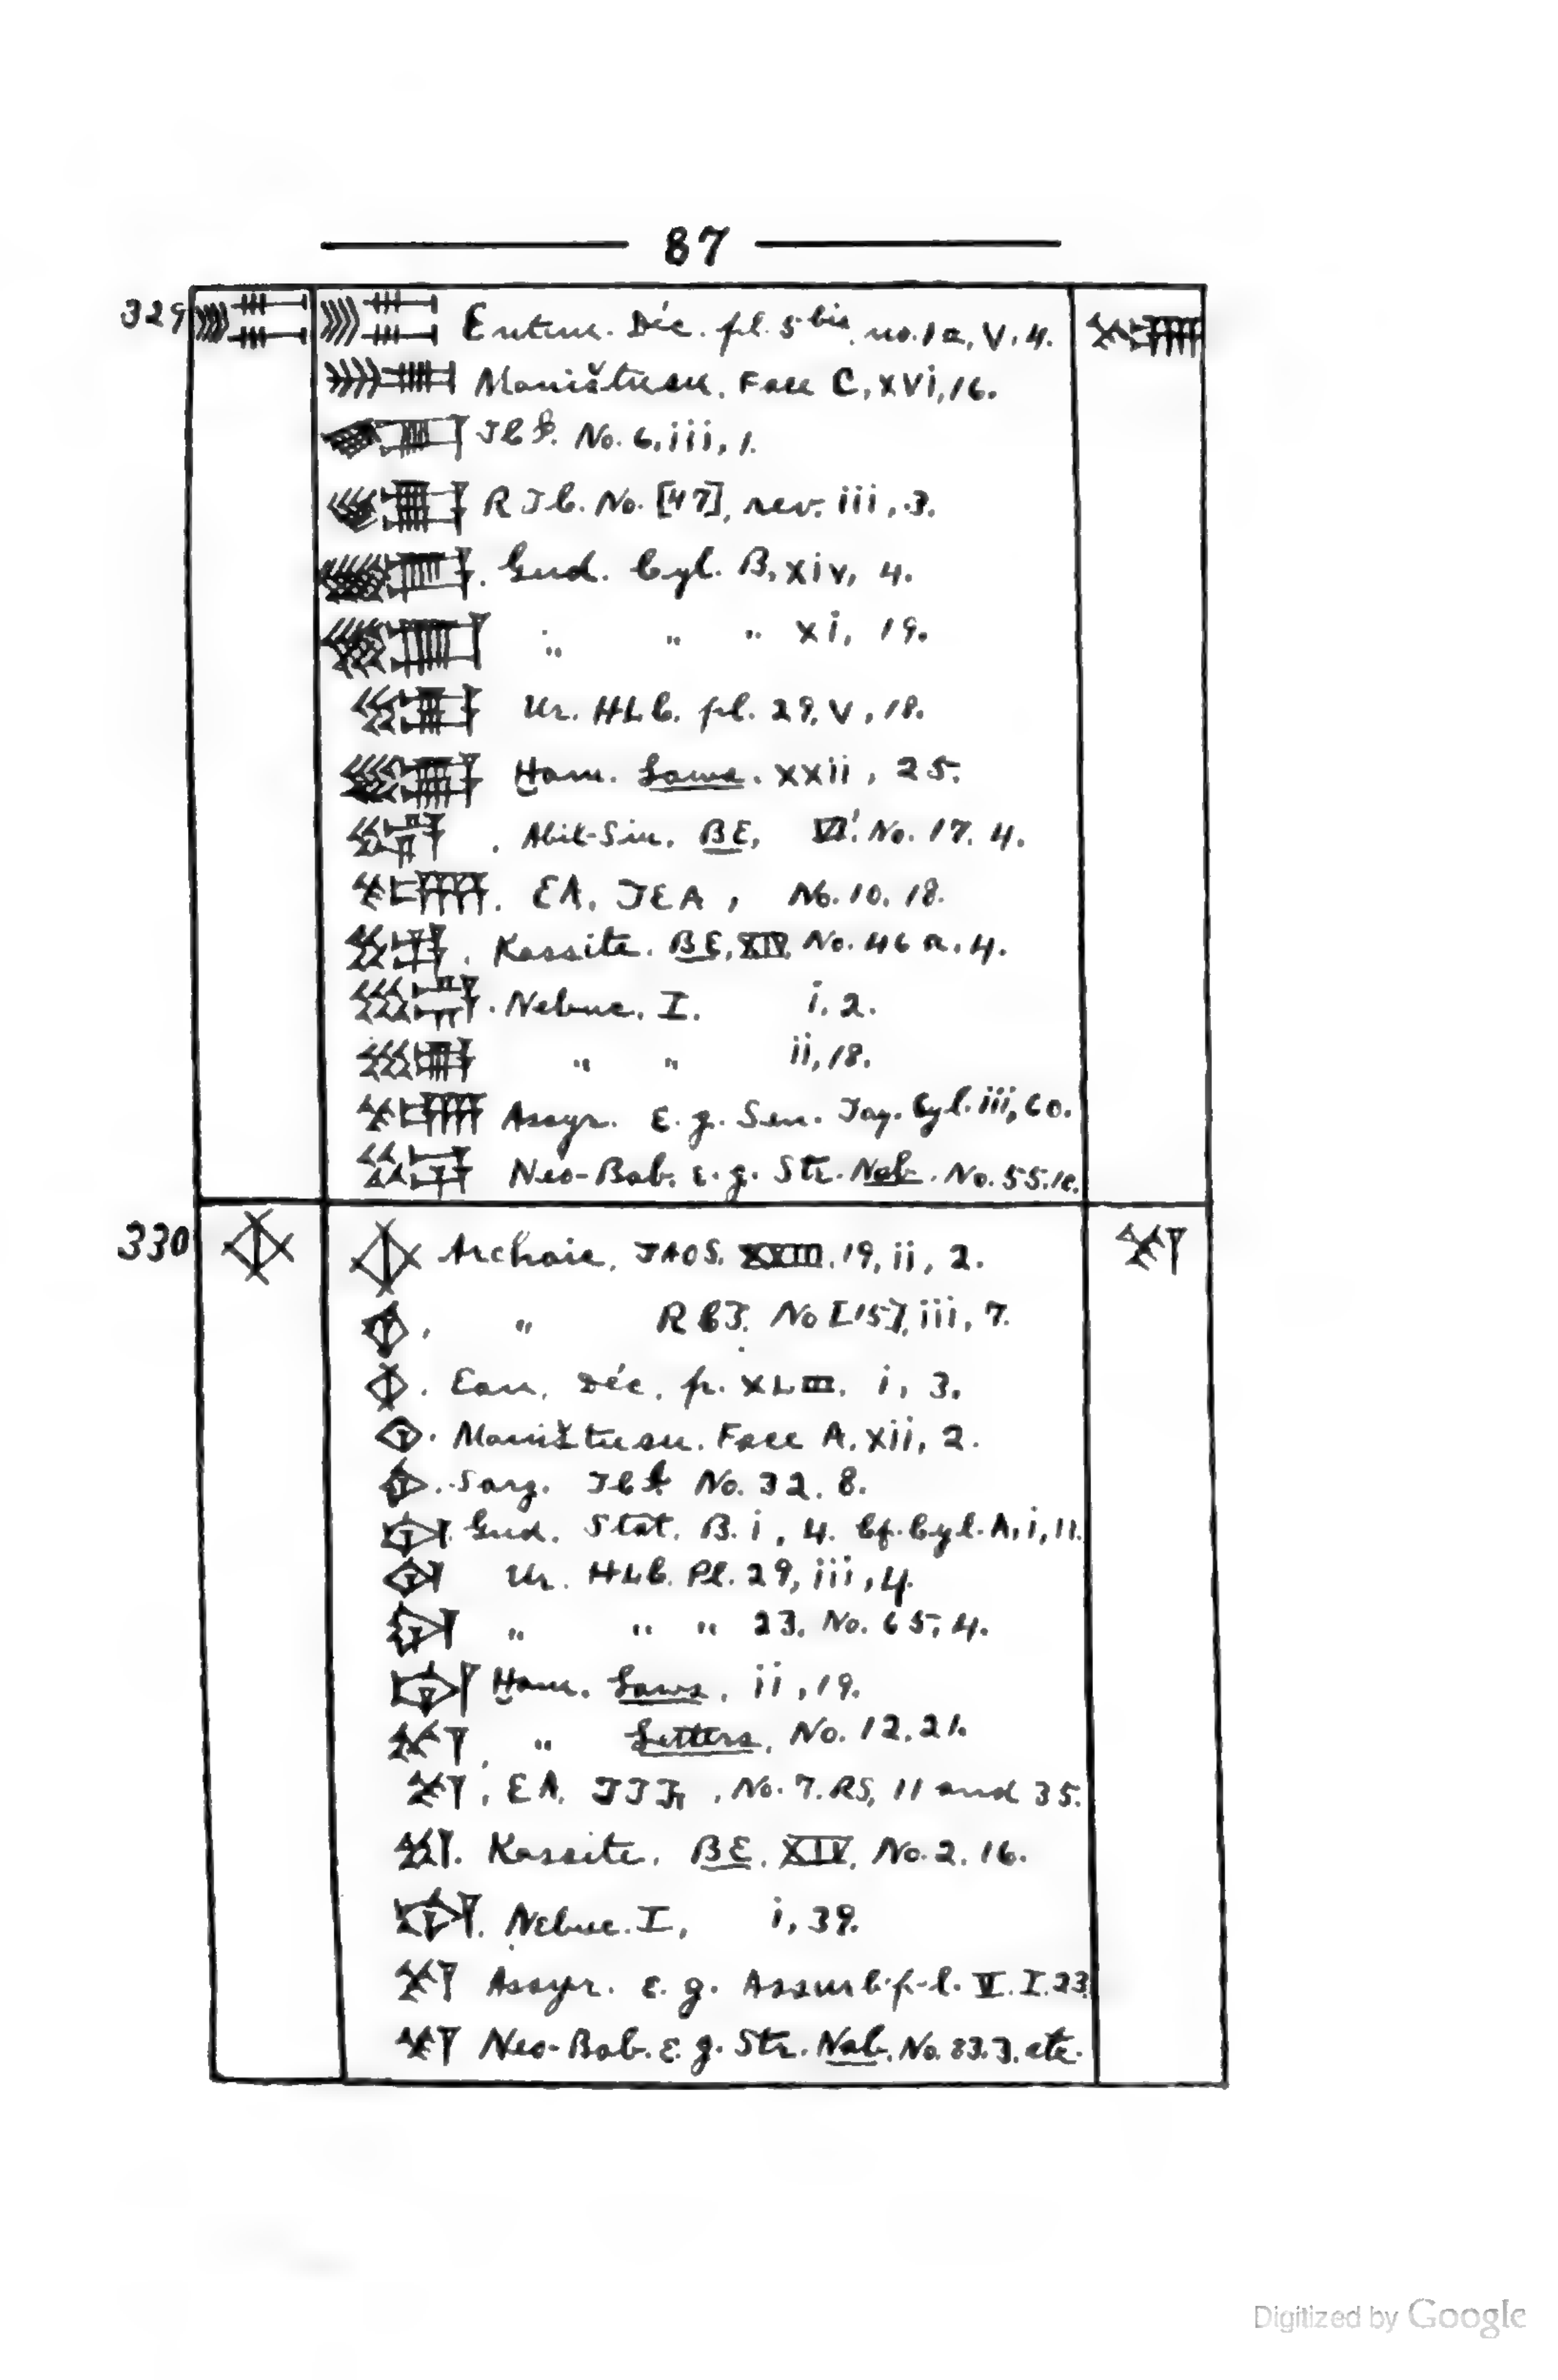 87
329
Entem. Déc. pl. 5 bis. no. 1a, V. 4.
Maništusu. Face C, xvi, 16.
No. 6, iii, 1.
No. [47], rev. iii, 3.
Gud. Cyl. B, xiv, 4.
" " " xi, 19.
Ur. HLC. pl. 29, V, 18.
Ḫam. Laws. xxii, 25.
Abil-Sin. BE, VI¹. No. 17. 4.
EA. TEA, No. 10. 18.
Kassite. BE, XIV, No. 46a. 4.
Nebuc. I. i. 2.
" " ii, 18.
Assyr. E. g. Sen. Tay. Cyl. iii, 60.
Neo-Bab. E. g. Str. Nab. No. 55. 10.
330
Archaic, JAOS. XXIII. 19, ii, 2.
" No [15], iii, 7.
Ean. Déc. p. XLIII. i, 3.
Maništusu. Face A. xii, 2.
Sarg. No. 32. 8.
Gud. Stat. B. i, 4. Cf. Cyl. A, i, 11.
Ur. HLC. Pl. 29, iii, 4.
" " " 23. No. 65, 4.
Ḫam. Laws, ii, 19.
" Letters, No. 12. 21.
EA. No. 7. RS, 11 and 35.
Kassite. BE. XIV, No. 2. 16.
Nebuc. I, i, 39.
Assyr. E. g. Assurb-p-l. V. I. 23
Neo-Bab. E. g. Str. Nab. No. 83. 3. etc.
Digitized by Google